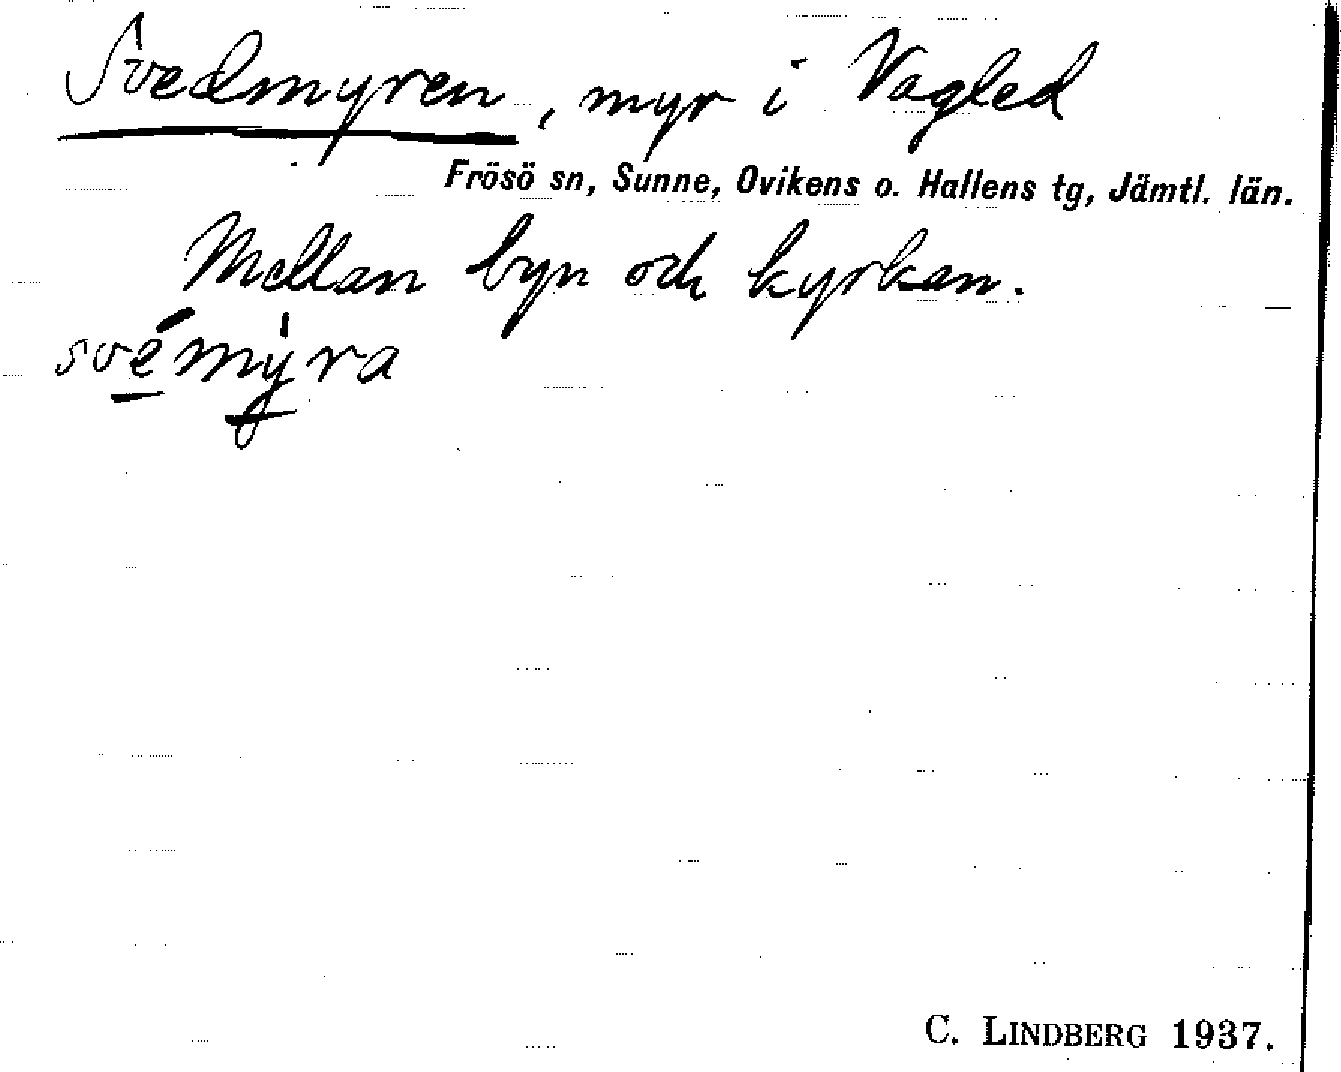 Svedmyren, myr i Vagled
Frösö sn, Sunne, Ovikens o. Hallens tg, Jämtl. län.
Mellan byn och kyrkan.
svémy̍ra
C. LINDBERG 1937.